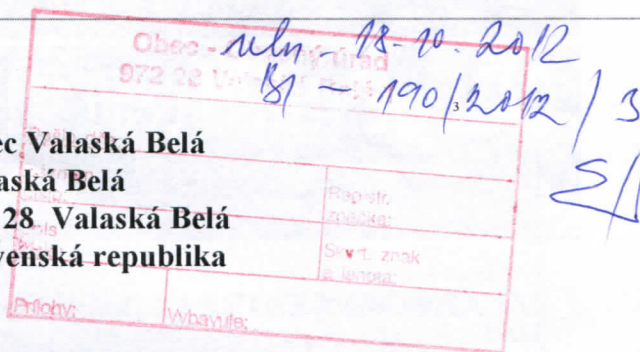 Obec - úrad
18.10.2012
972 28
190/2012/3
ec Valaská Belá
aská Belá
28 Valaská Belá
venská republika
Registr.
značka:
Skart. znak
a lehota:
Prílohy:
Vybavuje: